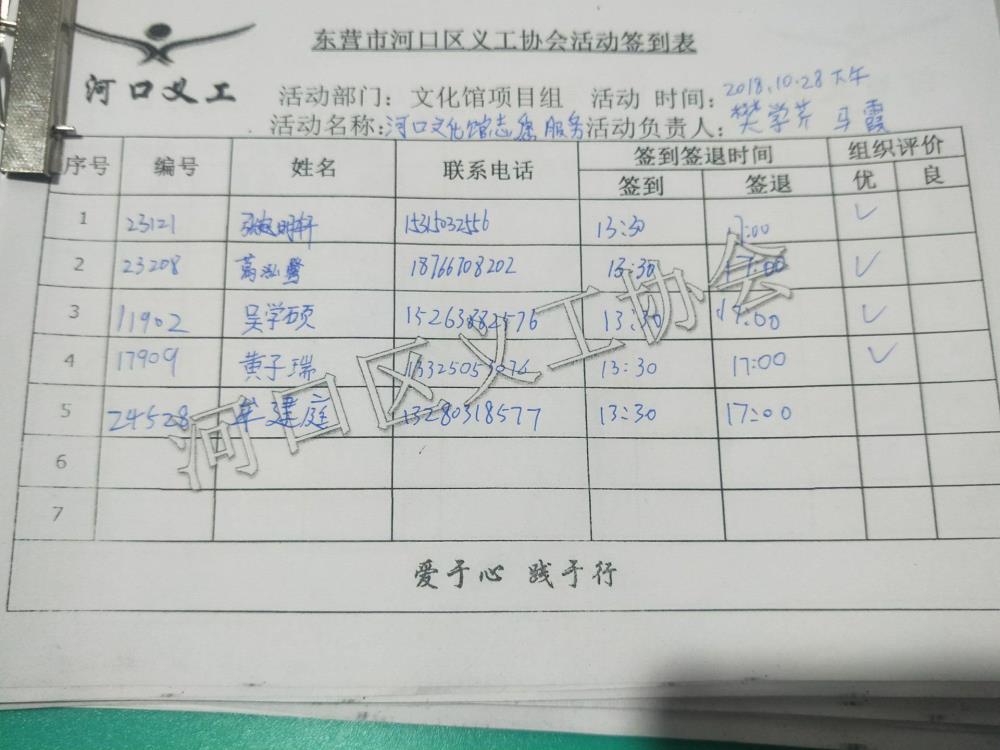 东营市河口区义工协会活动签到表
河口义工
活动部门: 文化馆项目组 活动 时间: 2018.10.28 下午
活动名称: 河口文化馆志愿服务 活动负责人: 樊学芹 马霞
序号 编号 姓名 联系电话 签到签退时间 组织评价
签到 签退 优 良
1 23121 15315032556 13:30 17:00 ✓
2 23208 18766708202 13:30 17:00 ✓
3 11902 吴学硕 15263882576 13:30 17:00 ✓
4 17909 黄子瑞 13:30 17:00 ✓
5 24528 牟建庭 13280318577 13:30 17:00
6
7
爱于心 践于行
河口区义工协会